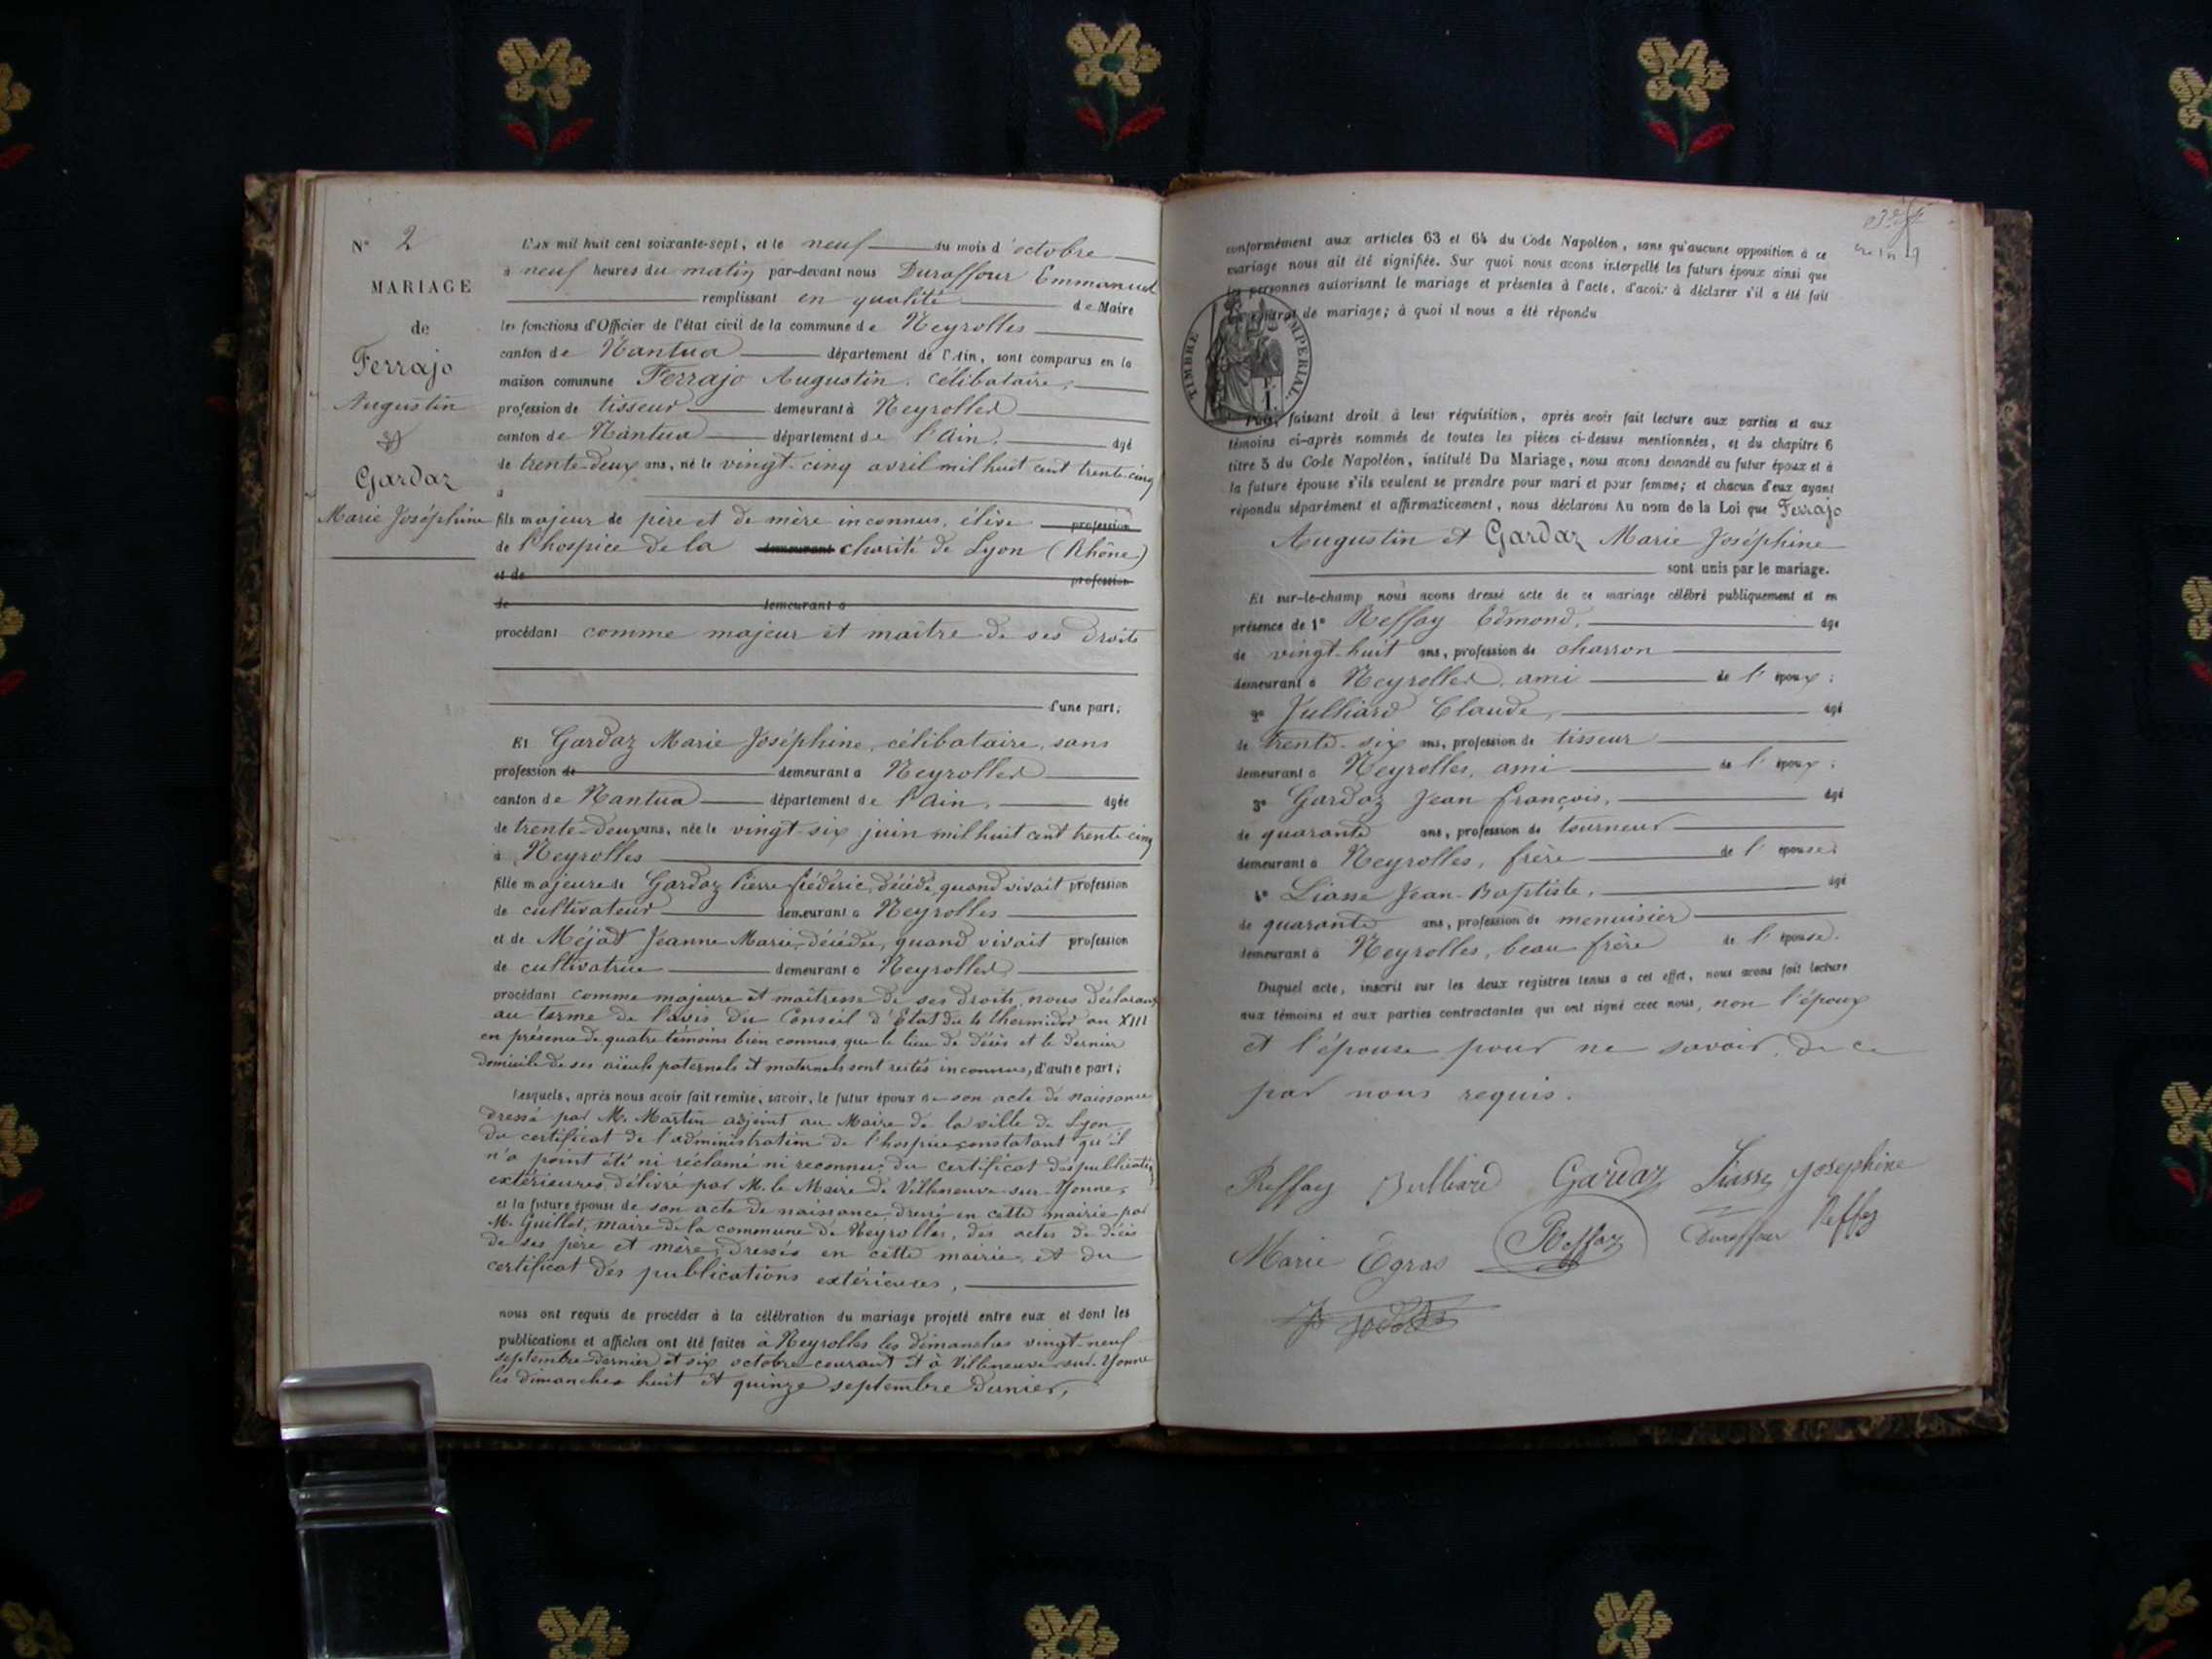 N° 2
MARIAGE
de
Ferrajo
Augustin
&
Gardaz
Marie Joséphine
L'an mil huit cent soixante-sept, et le neuf du mois d'octobre
à neuf heures du matin par-devant nous Duraffour Emmanuel
remplissant en qualité de Maire
les fonctions d'Officier de l'état civil de la commune de Neyrolles
canton de Nantua département de l'Ain, sont comparus en la
maison commune Ferrajo Augustin, célibataire,
profession de tisseur demeurant à Neyrolles
canton de Nantua département de l'Ain, âgé
de trente-deux ans, né le vingt-cinq avril mil huit cent trente-cinq
à
fils majeur de père et de mère inconnus, élève profession
de l'hospice de la demeurant charité de Lyon (Rhône)
et de profession
de demeurant à
procédant comme majeur et maître de ses droits
d'une part;
Et Gardaz Marie Joséphine, célibataire, sans
profession de demeurant à Neyrolles
canton de Nantua département de l'Ain, âgée
de trente-deux ans, née le vingt-six juin mil huit cent trente-cinq
à Neyrolles
fille majeure de Gardaz Pierre fréderic, décédé, quand vivait profession
de cultivateur demeurant à Neyrolles
et de Méjat Jeanne Marie, décédée, quand vivait profession
de cultivatrice demeurant à Neyrolles
procédant comme majeure et maîtresse de ses droits, nous déclarant
au terme de l'avis du Conseil d'État du 4 thermidor an XIII
en présence de quatre témoins bien connus, que le lieu de décès et le dernier
domicile de ses aïeuls paternels et maternels sont restés inconnus, d'autre part;
Lesquels, après nous avoir fait remise, savoir, le futur époux de son acte de naissance
dressé par M. Martin adjoint au Maire de la ville de Lyon
du certificat de l'administration de l'hospice constatant qu'il
n'a point été ni réclamé ni reconnu, du certificat des publications
extérieures, délivré par M. le Maire de Villeneuve-sur-Yonne,
et la future épouse de son acte de naissance dressé en cette mairie par
M. Guillot, maire de la commune de Neyrolles, des actes de décès
de ses père et mère, dressés en cette mairie, et du
certificat des publications extérieures,
nous ont requis de procéder à la célébration du mariage projeté entre eux et dont les
publications et affiches ont été faites à Neyrolles les dimanches vingt-neuf
septembre dernier et six octobre courant et à Villeneuve-sur-Yonne
les dimanches huit et quinze septembre dernier,
conformément aux articles 63 et 64 du Code Napoléon, sans qu'aucune opposition à ce
mariage nous ait été signifiée. Sur quoi nous avons interpellé les futurs époux ainsi que
les personnes autorisant le mariage et présentes à l'acte, d'avoir à déclarer s'il a été fait
un contrat de mariage; à quoi il nous a été répondu
TIMBRE IMPERIAL
faisant droit à leur réquisition, après avoir fait lecture aux parties et aux
témoins ci-après nommés de toutes les pièces ci-dessus mentionnées, et du chapitre 6
titre 5 du Code Napoléon, intitulé Du Mariage, nous avons demandé au futur époux et à
la future épouse s'ils veulent se prendre pour mari et pour femme; et chacun d'eux ayant
répondu séparément et affirmativement, nous déclarons Au nom de la Loi que Ferrajo
Augustin et Gardaz Marie Joséphine
sont unis par le mariage.
Et sur-le-champ nous avons dressé acte de ce mariage célébré publiquement et en
présence de 1° Reffay Edmond, âgé
de vingt-huit ans, profession de charron
demeurant à Neyrolles, ami de l'époux;
2° Julliard Claude, âgé
de trente-six ans, profession de tisseur
demeurant à Neyrolles, ami de l'époux;
3° Gardaz Jean françois, âgé
de quarante ans, profession de tourneur
demeurant à Neyrolles, frère de l'épouse;
4° Liasse Jean-Baptiste, âgé
de quarante ans, profession de menuisier
demeurant à Neyrolles, beau frère de l'épouse.
Duquel acte, inscrit sur les deux registres tenus à cet effet, nous avons fait lecture
aux témoins et aux parties contractantes qui ont signé avec nous, non l'époux
et l'épouse pour ne savoir, de ce
par nous requis.
Reffay Julliard Gardaz Liasse Josephine
Reffay
Marie Egras Reffay Duraffour